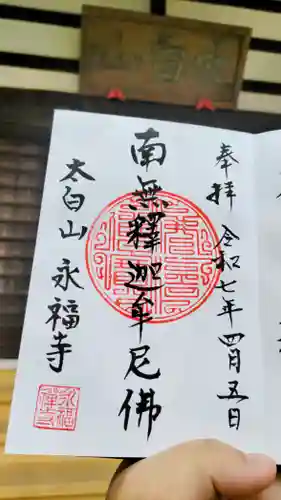 奉拝 令和七年四月五日
南無釋迦牟尼佛
太白山 永福寺